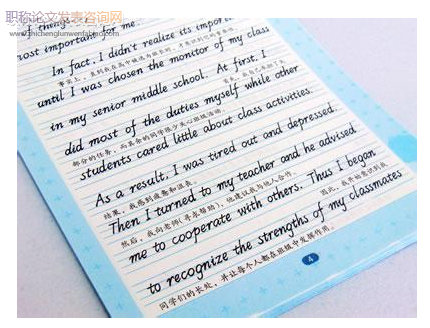 职称论文发表咨询网
www.zhichenglunwenfabiao.com
most important for me.
In fact, I didn't realize its
until I was chosen the monitor of my class
in my senior middle school. At first, I
did most of the duties myself while other
部分的任务，而其余的同学很少关心班级活动。
students cared little about class activities.
As a result, I was tired out and depressed.
结果，我感到疲惫和沮丧。
Then I turned to my teacher and he advised
然后，我向老师(寻求帮助)，他建议我与他人合作。
me to cooperate with others. Thus I began
因此，我开始意识到我
to recognize the strengths of my classmates
同学们的长处，并让每个人都在班级中发挥作用。
4